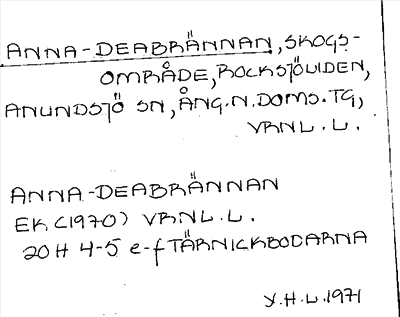 ANNA-DEABRÄNNAN, SKOGS-
OMRÅDE, ROCKSJÖLIDEN,
ANUNDSJÖ SN, ÅNG.N.DOMS.TG,
VRNL.L.
ANNA-DEABRÄNNAN
EK (1970) VRNL.L.
20 H 4-5 e-f TÄRNICKBODARNA
Y.H.L. 1971